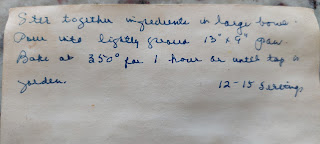 Stir together ingredients in large bowl.
Pour into lightly grease 13" x 9" pan.
Bake at 350° for 1 hour or until top is
golden.
12-15 Servings